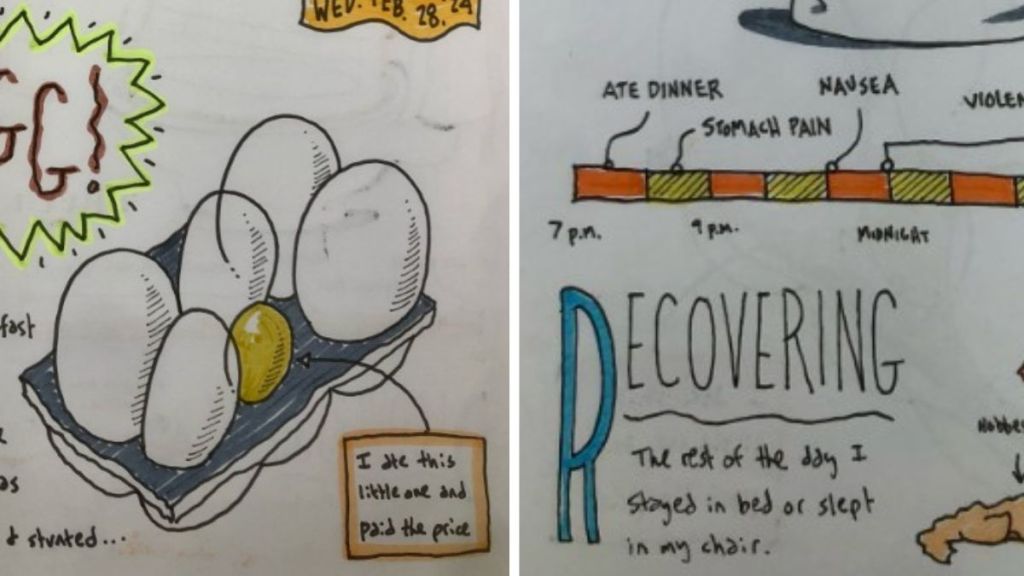 WED. FEB. 28. 24
GG!
fast
as
d stunted...
I ate this
little one and
paid the price
ATE DINNER
NAUSEA
VIOLEN
STOMACH PAIN
7 p.m.
9 p.m.
MIDNIGHT
RECOVERING
The rest of the day I
stayed in bed or slept
in my chair.